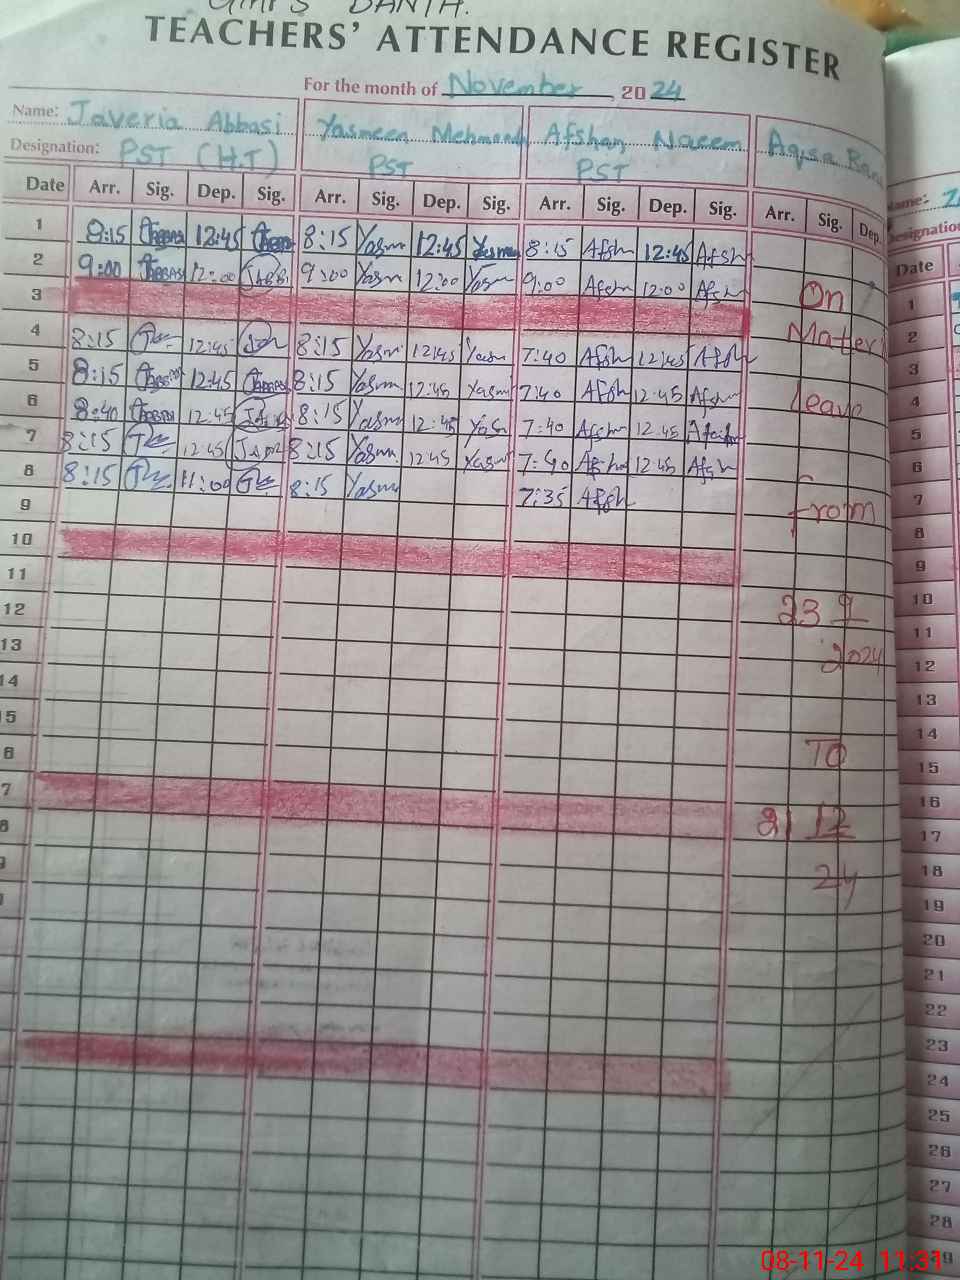 TEACHERS' ATTENDANCE REGISTER
For the month of November, 2024
Name: Javeria Abbasi Yasmeen Mehmood Afshan Naeem Aqsa
Designation: PST (H.T) PST PST
Date Arr. Sig. Dep. Sig. Arr. Sig. Dep. Sig. Arr. Sig. Dep. Sig. Arr. Sig. Dep.
1 8:15 12:45 8:15 Yasm 12:45 Yasm 8:15 Afsh 12:45 Afsh
2 9:00 12:00 9:00 Yasm 12:00 Yasm 9:00 Afsh 12:00 Afsh On
3
4 8:15 12:45 8:15 Yasm 12:45 Yasm 7:40 Afsh 12:45 Afsh Mater
5 8:15 12:45 8:15 Yasm 12:45 Yasm 7:40 Afsh 12:45 Afsh
6 8:40 12:45 8:15 Yasm 12:45 Yasm 7:40 Afsh 12:45 leave
7 8:15 12:45 8:15 Yasm 12:45 Yasm 7:40 Afsh 12:45 Afsh
8 8:15 11:00 8:15 Yasm 7:35 Afsh
9 from
10
11
12 23 9
13 2024
14
15
6 TO
7
8 21 12
9 24
Name:
Designation
Date
1
2
3
4
5
6
7
8
9
10
11
12
13
14
15
16
17
18
19
20
21
22
23
24
25
26
27
28
08-11-24 11:31